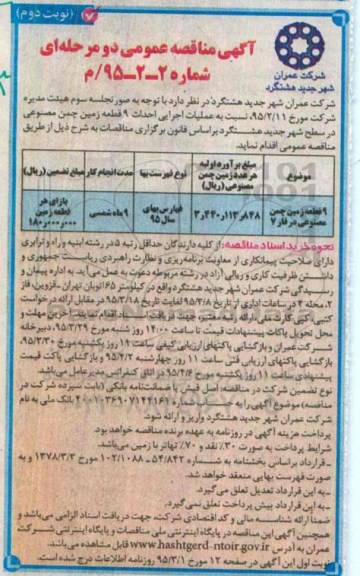 (نوبت دوم)
آگهی مناقصه عمومی دو مرحله‌ای
شماره ۲-۲-۹۵/م
شرکت عمران
شهر جدید هشتگرد
شرکت عمران شهر جدید هشتگرد در نظر دارد با توجه به صورتجلسه سوم هیئت مدیره
شرکت مورخ ۹۵/۲/۱۱، نسبت به عملیات اجرایی احداث ۹ قطعه زمین چمن مصنوعی
در سطح شهر جدید هشتگرد براساس قانون برگزاری مناقصات به شرح ذیل از طریق
مناقصه عمومی اقدام نماید.
موضوع
مبلغ برآورد اولیه هر عدد زمین چمن مصنوعی (ریال)
نوع فهرست بها
مدت انجام کار
مبلغ تضمین (ریال)
۹ قطعه زمین چمن مصنوعی در فاز ۷
۳٫۴۴۰٫۱۱۳٫۸۴۸
فهارس بهای سال ۹۵
۹ ماه شمسی
بازای هر قطعه زمین ۱۸۰٫۰۰۰٫۰۰۰
نحوه خرید اسناد مناقصه: از کلیه دارندگان حداقل رتبه ۵ در رشته ابنیه و راه و ترابری
دارای صلاحیت پیمانکاری از معاونت برنامه ریزی و نظارت راهبردی ریاست جمهوری و
داشتن ظرفیت کاری و ریالی آزاد در رشته مربوطه دعوت بعمل می‌آید. به اداره پیمان و
رسیدگی شرکت عمران شهر جدید هشتگرد واقع در کیلومتر ۶۵ اتوبان تهران -قزوین، فاز
۲، محله ۴ در ساعات اداری از تاریخ ۹۵/۳/۸ لغایت تاریخ ۹۵/۳/۱۸ در مقابل ارائه درخواست
کتبی، کپی کارت ملی و ارائه معرفینامه معتبر، جهت دریافت اسناد اقدام نمایند. آخرین مهلت و
محل تحویل پاکات پیشنهادات قیمت تا ساعت ۱۴:۰۰ روز شنبه مورخ ۹۵/۳/۲۹، دبیرخانه
شرکت عمران و بازگشایی پاکتهای ارزیابی کیفی ساعت ۱۱ روز یکشنبه مورخ ۹۵/۳/۳۰،
بازگشایی پاکتهای ارزیابی فنی ساعت ۱۱ روز چهارشنبه ۹۵/۴/۲ و بازگشایی پاکت قیمت
پیشنهادی ساعت ۱۱ روز یکشنبه مورخ ۹۵/۴/۶ در اتاق کنفرانس مدیرعامل می‌باشد.
نوع تضمین شرکت در مناقصه: اصل فیش یا ضمانتنامه بانکی (بابت سپرده شرکت در
شرکت عمران شهر جدید هشتگرد واریز و ارائه شود.
پرداخت هزینه آگهی در روزنامه به عهده برنده مناقصه خواهد بود.
شرایط پرداخت به صورت ۳۰٪ نقد و ۷۰٪ تهاتر با زمین می‌باشد.
-قرارداد براساس بخشنامه به شماره ۵۴/۸۴۲-۱۰۲/۱۰۸۸ مورخ ۱۳۷۸/۳/۳ و به
صورت فهرست بهایی منعقد خواهد شد.
-به این قرارداد تعدیل تعلق می‌گیرد.
-به این قرارداد پیش پرداخت تعلق نمی‌گیرد.
ضمناً ارائه شناسه ملی و کد اقتصادی شرکت، جهت دریافت اسناد الزامی می‌باشد و
همچنین آگهی این مناقصه در پایگاه اینترنتی ملی مناقصات و پایگاه اینترنتی شرکت
عمران به آدرس www.hashtgerd-ntoir.gov.ir قابل مشاهده می‌باشد.
نوبت اول این آگهی در صفحه ۱۲ مورخ ۹۵/۳/۱ روزنامه اطلاعات درج شده است.